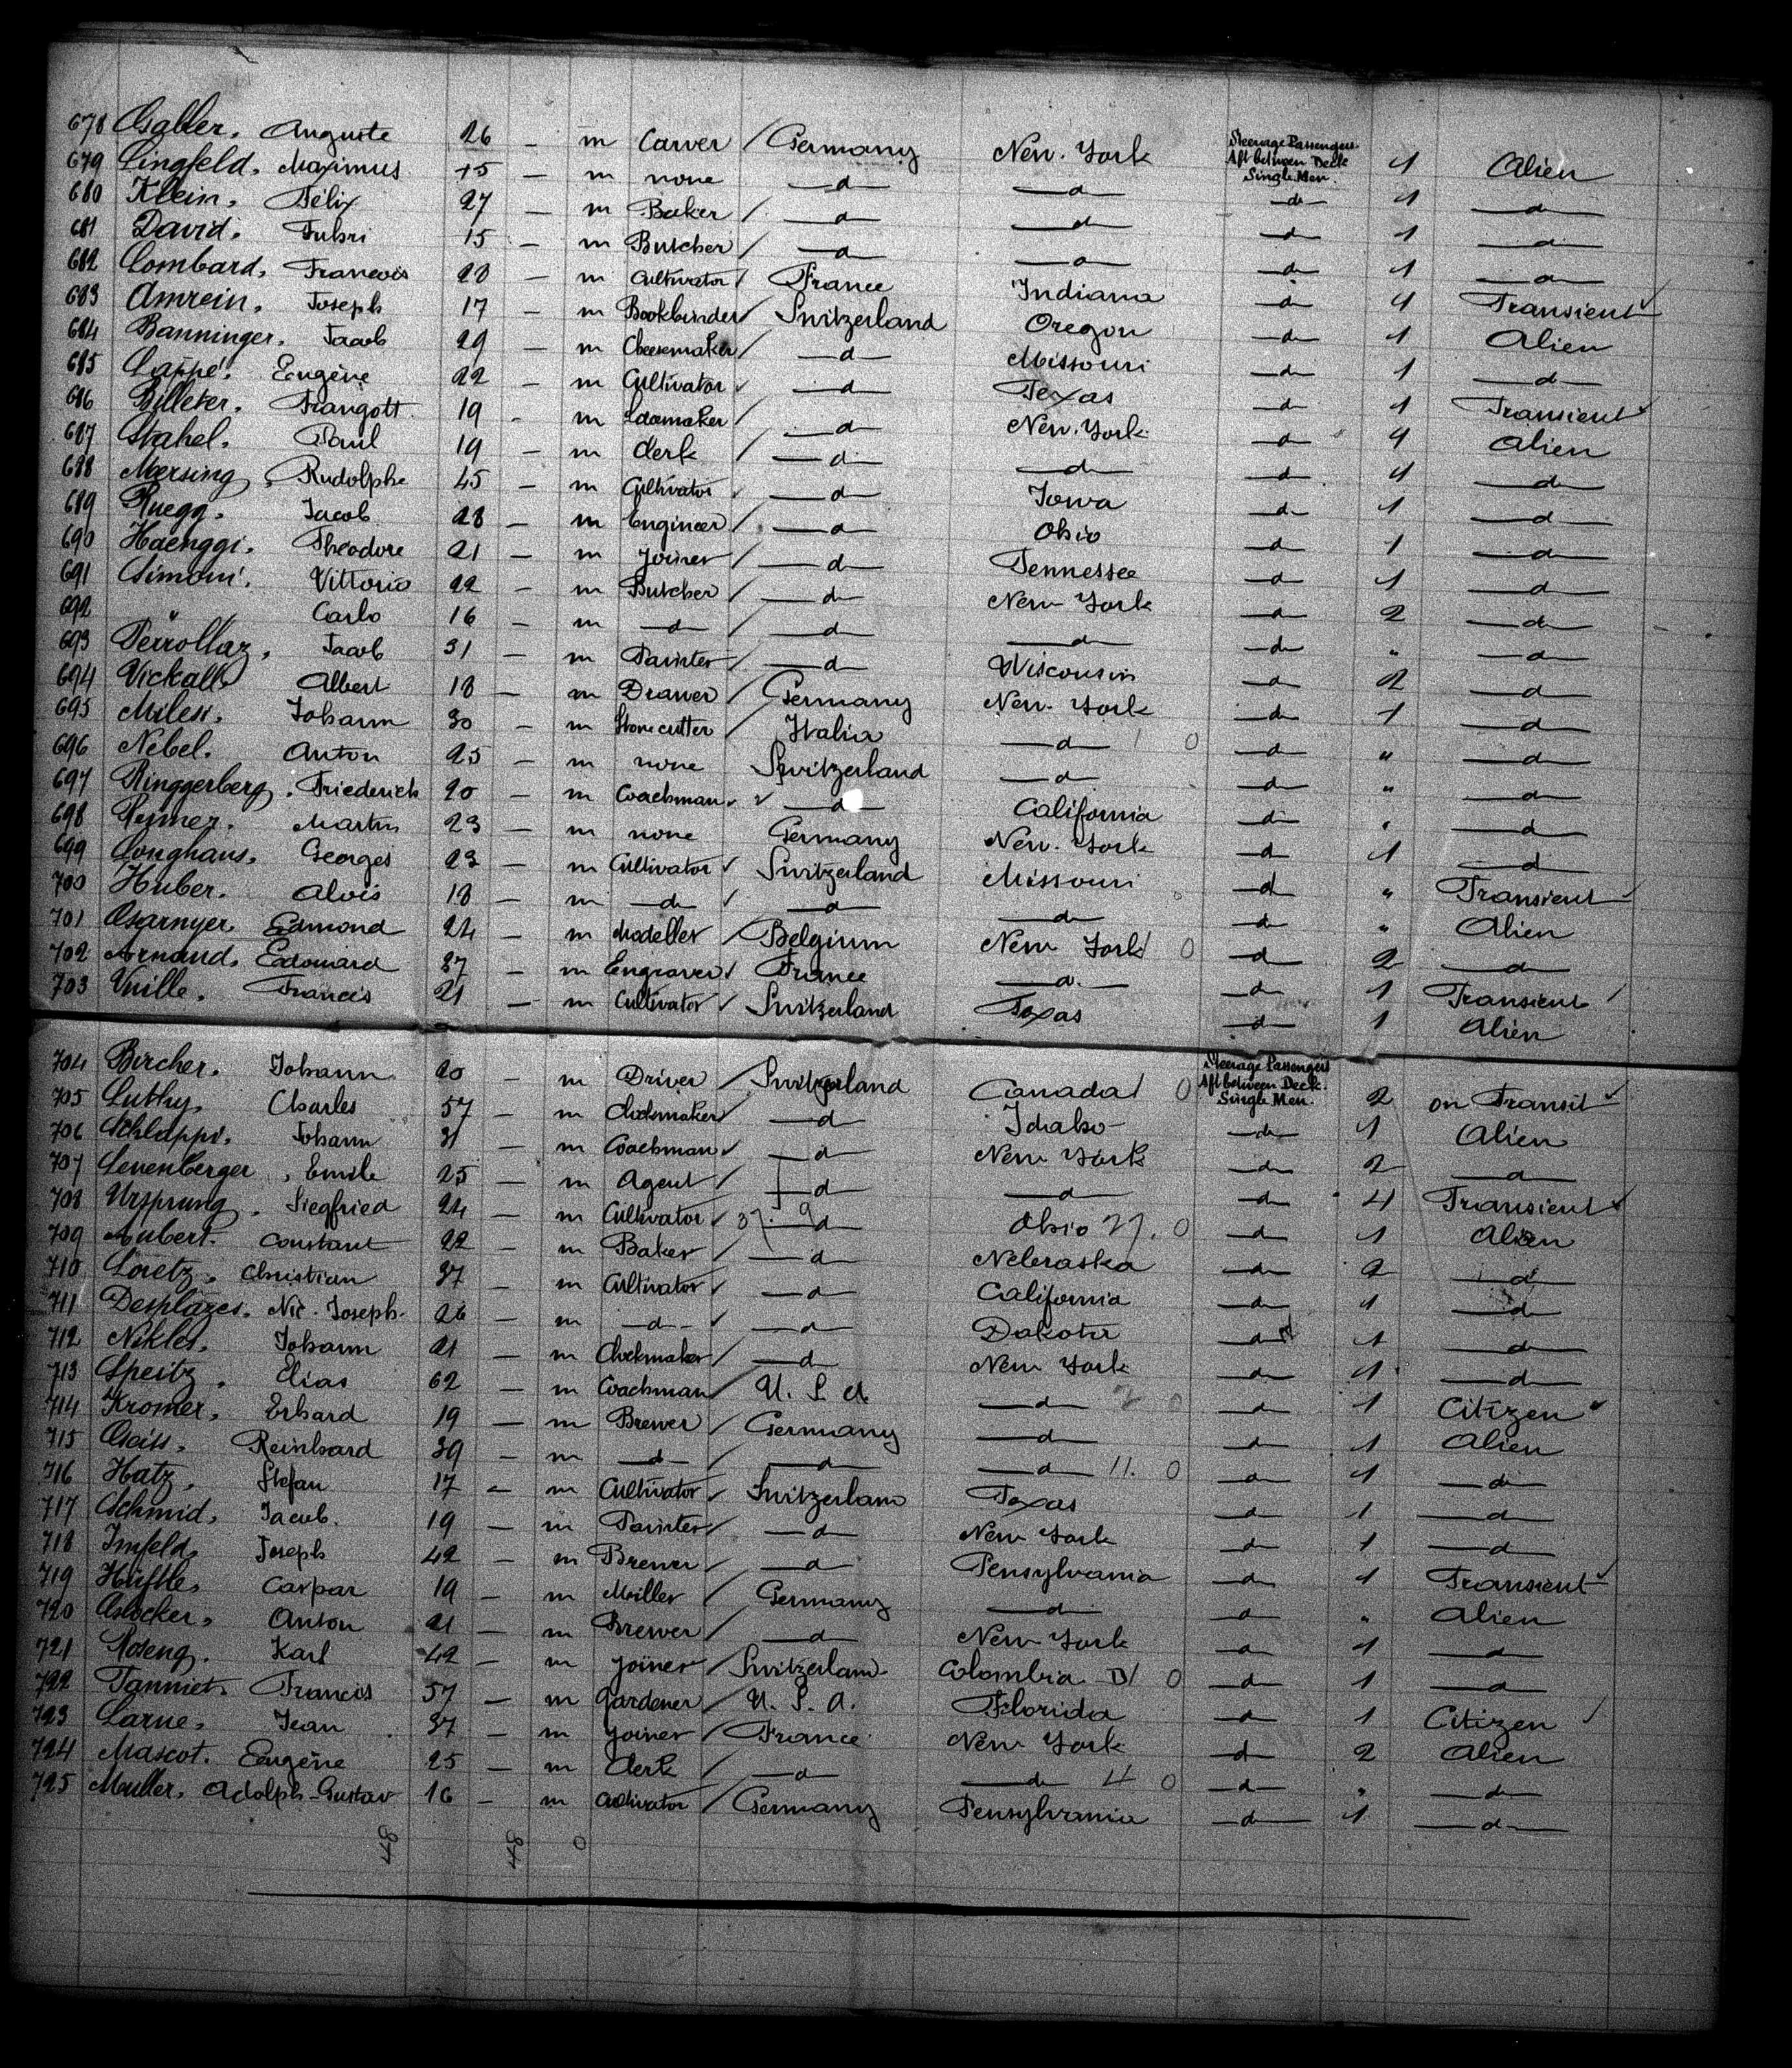 678 Gsaller. Auguste 26 — m Carver / Germany New. York Steerage Passengers Aft between Deck Single Men. 1 Alien
679 Lingfeld. Maximus 15 — m none —d— —d— —d— 1 —d—
680 Klein. Félix 27 — m Baker / —d— —d— —d— 1 —d—
681 David. Fubri 15 — m Butcher / —d— —d— —d— 1 —d—
682 Lombard. Francois 28 — m Cultivator / France Indiana —d— 4 Transient ✓
683 Amrein. Joseph 17 — m Bookbinder / Switzerland Oregon —d— 1 Alien
684 Banninger. Jacob 29 — m Cheesemaker / —d— Missouri —d— 1 —d—
685 Cappé. Eugène 22 — m Cultivator ✓ —d— Texas —d— 1 Transient ✓
686 Billeter. Traugott. 19 — m / —d— New. York —d— 4 Alien
687 Stahel. Paul 19 — m Clerk / —d— —d— —d— 4 —d—
688 Mersing, Rudolphe 45 — m Cultivator ✓ —d— Iowa —d— 1 —d—
689 Ruegg. Jacob 28 — m Engineer / —d— Ohio —d— 1 —d—
690 Haenggi. Theodore 21 — m Joiner / —d— Tennessee —d— 1 —d—
691 Simoni. Vittorio 22 — m Butcher / —d— New York —d— 2 —d—
692 " Carlo 16 — m —d— / —d— —d— —d— " —d—
693 Perrollaz. Jacob 31 — m Painter / —d— Wisconsin —d— 2 —d—
694 Vickall Albert 18 — m Drawer / Germany New. York —d— 1 —d—
695 Milesi. Johann 30 — m Stonecutter / Italia —d— 1 0 —d— " —d—
696 Nebel. Anton 25 — m none Switzerland —d— —d— " —d—
697 Ringgerberg. Friederich 20 — m Coachman ✓ ✓ —d— California —d— " —d—
698 Reimer. Martin 23 — m none Germany New. York —d— 1 —d—
699 Longhaus. Georges 23 — m Cultivator ✓ Switzerland Missouri —d— " Transient ✓
700 Huber. Alois 18 — m —d— ✓ —d— —d— —d— " Alien
701 Gsarnyer. Edmond 24 — m Modeller / Belgium New York 0 —d— 2 —d—
702 Arnaud. Edouard 37 — m Engraver ✓ France —d— —d— 1 Transient /
703 Vuille. Francis 21 — m Cultivator ✓ Switzerland Texas —d— 1 Alien
704 Bircher. Johann 20 — m Driver / Switzerland Canada 0 Steerage Passengers Aft between Deck. Single Men. 2 on Transit ✓
705 Luthy. Charles 57 — m Clockmaker / —d— Idaho —d— 1 Alien
706 Schlappi. Johann 31 — m Coachman ✓ —d— New York —d— 2 —d—
707 Leuenberger, Emile 25 — m Agent / —d— —d— —d— 4 Transient ✓
708 Ursprung. Siegfried 24 — m Cultivator ✓ 37. 9 —d— Ohio 27. 0 —d— 1 Alien
709 Aubert. Constant 22 — m Baker / —d— Nebraska —d— 2 —d—
710 Loretz. Christian 37 — m Cultivator / —d— California —d— 1 —d—
711 Desplazes. Nic. Joseph. 26 — m —d— ✓ —d— Dakota —d— 1 —d—
712 Nikles. Johann 21 — m Clockmaker / —d— New York —d— 1 —d—
713 Speitz. Elias 62 — m Coachman / U. S. A. —d— 2 0 —d— 1 Citizen ✓
714 Kromer. Erhard 19 — m Brewer / Germany —d— —d— 1 Alien
715 Geiss. Reinhard 39 — m —d— / —d— —d— 11. 0 —d— 1 —d—
716 Hatz. Stefan 17 — m Cultivator ✓ Switzerland Texas —d— 1 —d—
717 Schmid. Jacob. 19 — m Painter / —d— New York —d— 1 —d—
718 Imfeld. Joseph 42 — m Brewer / —d— Pensylvania —d— 1 Transient ✓
719 Hüftle. Caspar 19 — m Miller / Germany —d— —d— " Alien
720 Glocker. Anton 21 — m Brewer / —d— New York —d— 1 —d—
721 Roseng. Karl 42 — m Joiner / Switzerland Colombia D/ 0 —d— 1 —d—
722 Tanniet. Francis 57 — m Gardener / U. S. A. Florida —d— 1 Citizen ✓
723 Larue. Jean 37 — m Joiner / France New York —d— 2 Alien
724 Mascot. Eugène 25 — m Clerk / —d— —d— 4 0 —d— " —d—
725 Muller. Adolph-Gustav 16 — m Cultivator / Germany Pensylvania —d— 1 —d—